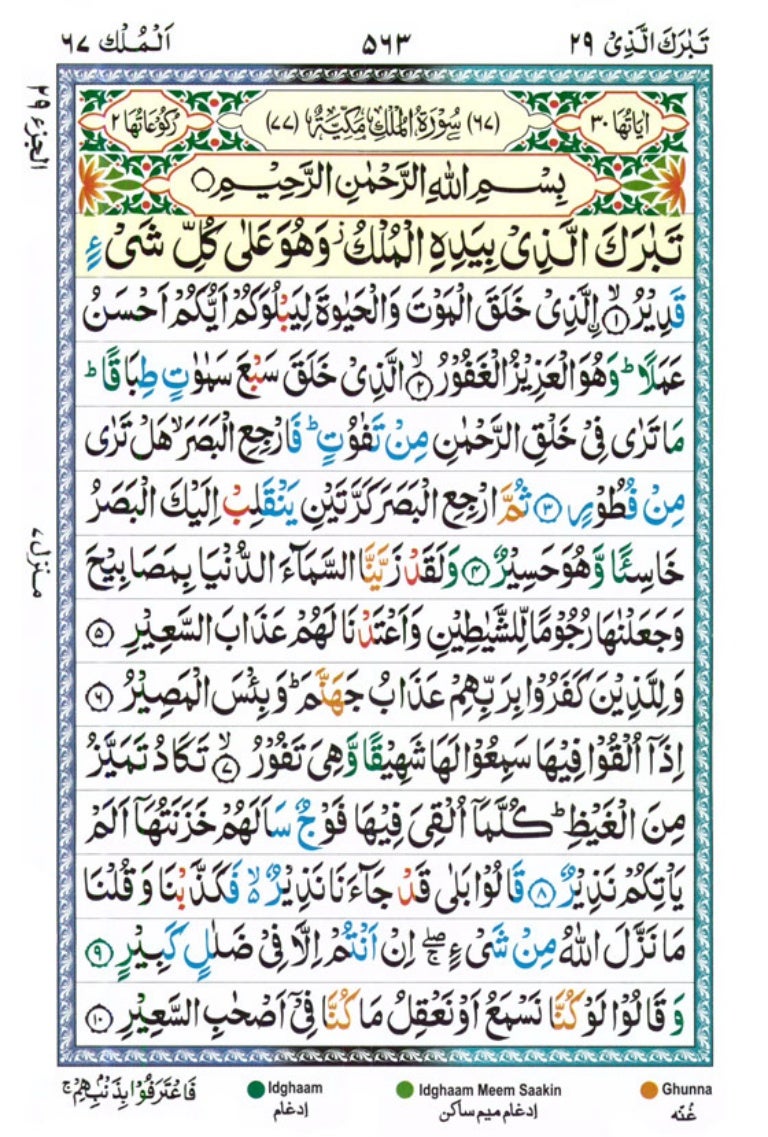 تَبٰرَكَ الَّذِیْ ۲۹ ۵۶۳ اَلْمُلْك ۶۷
الجزء ۲۹
اٰیَاتُهَا ۳۰ (۶۷) سُوْرَةُ الْمُلْكِ مَكِّیَّةٌ (۷۷) رُكُوْعَاتُهَا ۲
بِسْمِ اللهِ الرَّحْمٰنِ الرَّحِیْمِ۝
تَبٰرَكَ الَّذِیْ بِیَدِهِ الْمُلْكُ ز وَهُوَ عَلٰی كُلِّ شَیْءٍ
قَدِیْرُ ۙ﴿۱﴾ اِۨلَّذِیْ خَلَقَ الْمَوْتَ وَالْحَیٰوةَ لِیَبْلُوَكُمْ اَیُّكُمْ اَحْسَنُ
عَمَلًا ؕ وَهُوَ الْعَزِیْزُ الْغَفُوْرُ ۙ﴿۲﴾ الَّذِیْ خَلَقَ سَبْعَ سَمٰوٰتٍ طِبَاقًا ؕ
مَا تَرٰی فِیْ خَلْقِ الرَّحْمٰنِ مِنْ تَفٰوُتٍ ؕ فَارْجِعِ الْبَصَرَ ۙ هَلْ تَرٰی
مِنْ فُطُوْرٍ ﴿۳﴾ ثُمَّ ارْجِعِ الْبَصَرَ كَرَّتَیْنِ یَنْقَلِبْ اِلَیْكَ الْبَصَرُ
خَاسِئًا وَّهُوَ حَسِیْرٌ ﴿۴﴾ وَلَقَدْ زَیَّنَّا السَّمَآءَ الدُّنْیَا بِمَصَابِیْحَ
وَجَعَلْنٰهَا رُجُوْمًا لِّلشَّیٰطِیْنِ وَاَعْتَدْنَا لَهُمْ عَذَابَ السَّعِیْرِ ﴿۵﴾
وَلِلَّذِیْنَ كَفَرُوْا بِرَبِّهِمْ عَذَابُ جَهَنَّمَ ؕ وَبِئْسَ الْمَصِیْرُ ﴿۶﴾
اِذَآ اُلْقُوْا فِیْهَا سَمِعُوْا لَهَا شَهِیْقًا وَّهِیَ تَفُوْرُ ۙ﴿۷﴾ تَكَادُ تَمَیَّزُ
مِنَ الْغَیْظِ ؕ كُلَّمَآ اُلْقِیَ فِیْهَا فَوْجٌ سَاَلَهُمْ خَزَنَتُهَآ اَلَمْ
یَاْتِكُمْ نَذِیْرٌ ﴿۸﴾ قَالُوْا بَلٰی قَدْ جَآءَنَا نَذِیْرٌ ۙ۬ فَكَذَّبْنَا وَقُلْنَا
مَا نَزَّلَ اللهُ مِنْ شَیْءٍ ۖۚ اِنْ اَنْتُمْ اِلَّا فِیْ ضَلٰلٍ كَبِیْرٍ ﴿۹﴾
وَقَالُوْا لَوْ كُنَّا نَسْمَعُ اَوْ نَعْقِلُ مَا كُنَّا فِیْۤ اَصْحٰبِ السَّعِیْرِ ﴿۱۰﴾
منزل ۷
فَاعْتَرَفُوْا بِذَنْۢبِهِمْ ۚ
Idghaam
ادغام
Idghaam Meem Saakin
ادغام میم ساکن
Ghunna
غُنّه